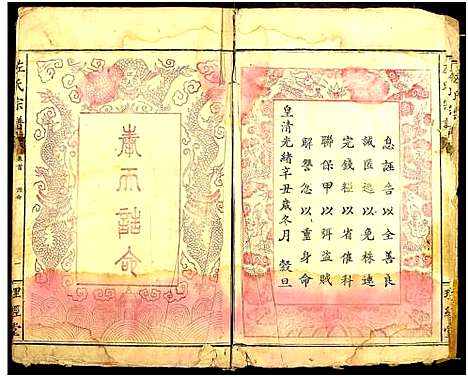 息誣告以全善良
誡匿逃以免株連
完錢糧以省催科
聯保甲以弭盜賊
解讐忿以重身命
皇清光緒辛丑歲冬月 穀旦
奉天誥命
左氏宗譜
卷首
誥命
一